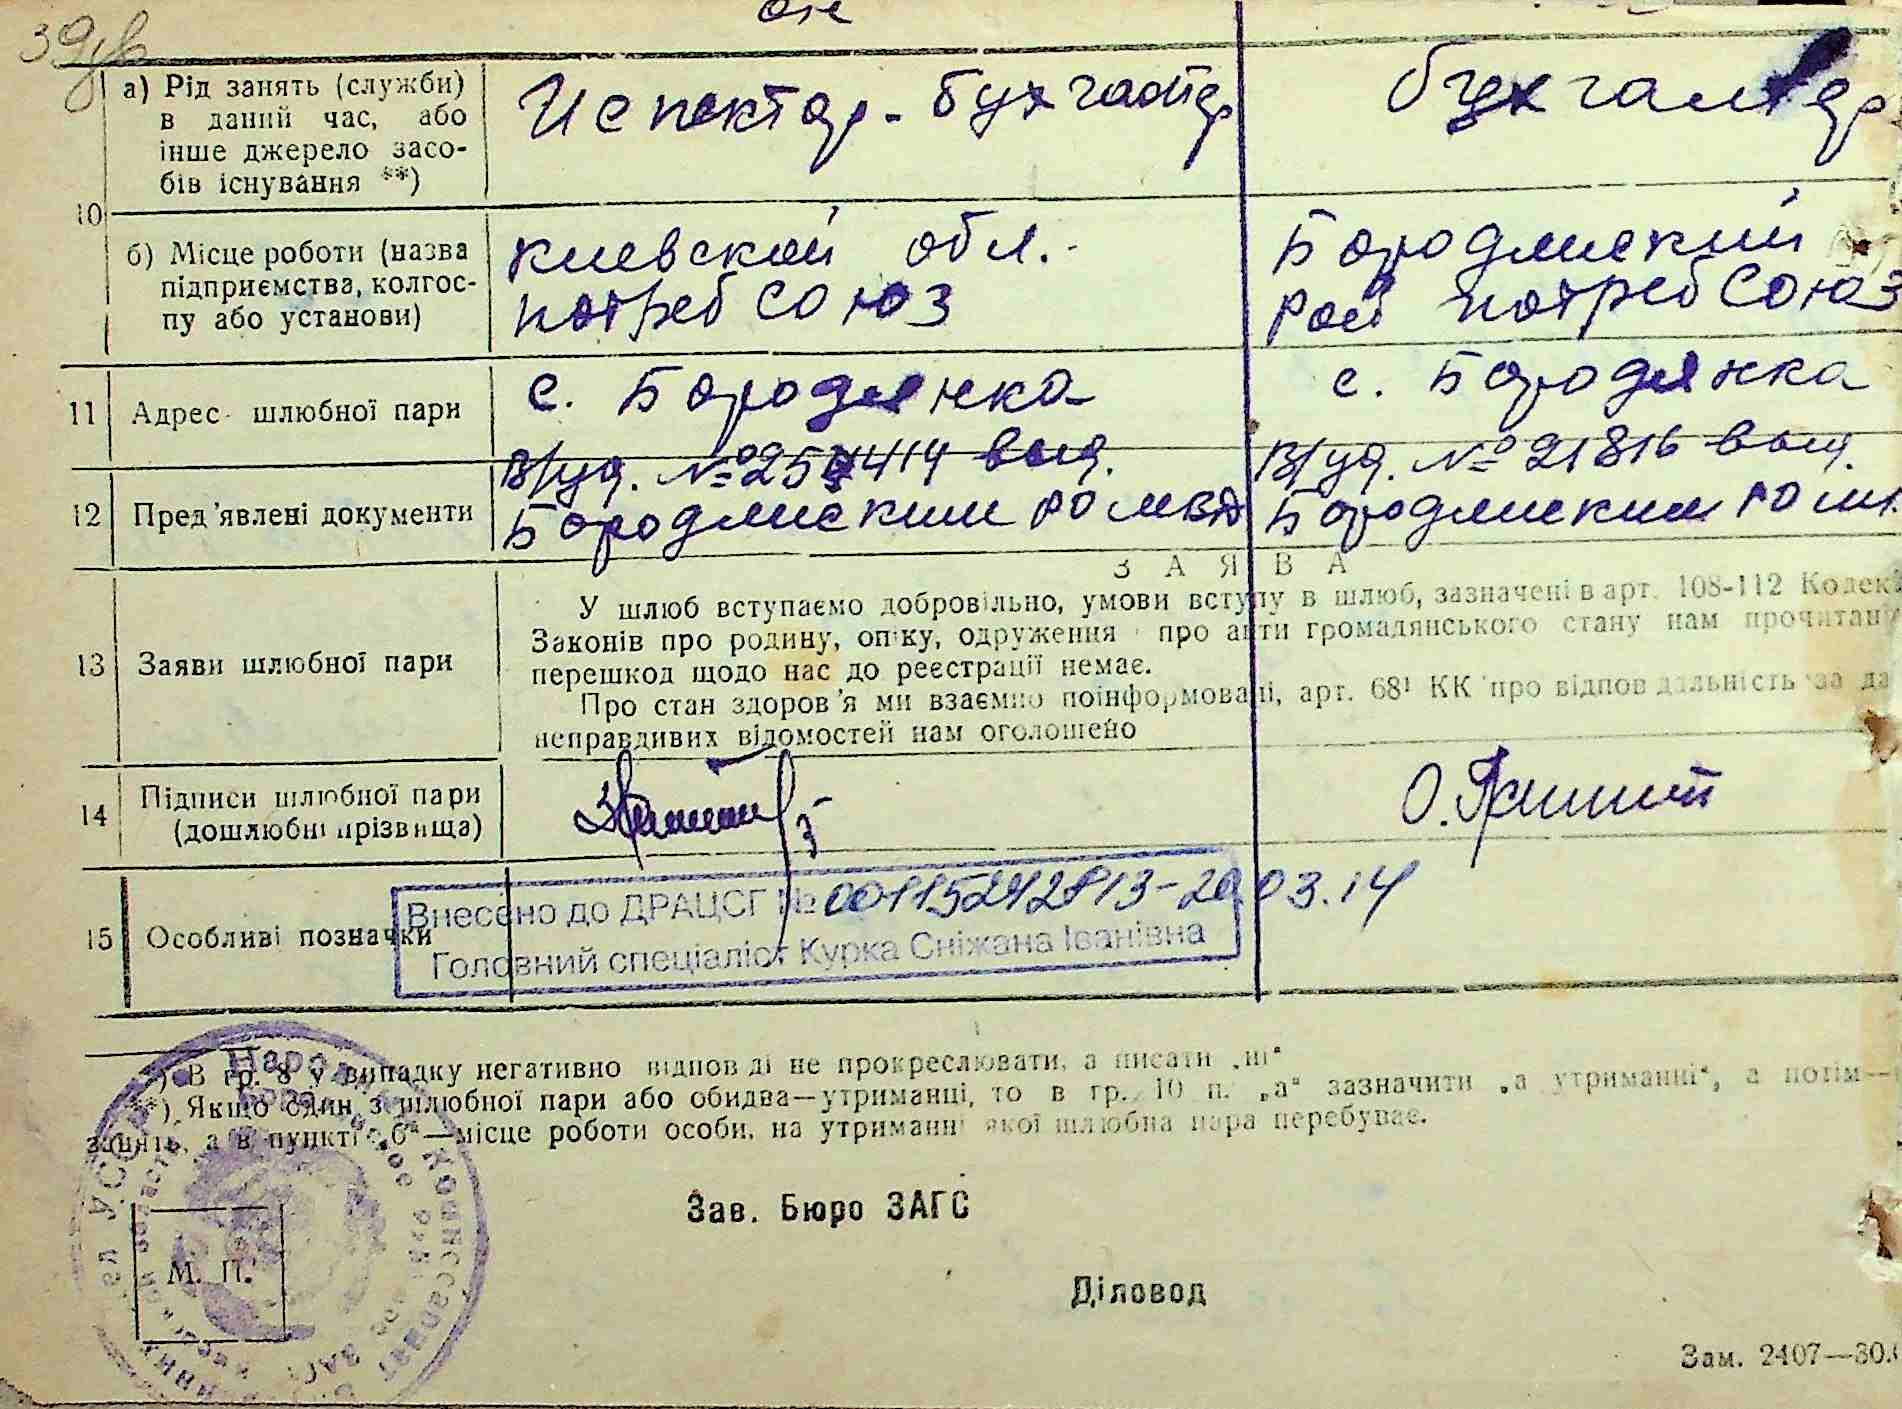 39
а) Рід занять (служби) в даний час, або інше джерело засо-
бів існування **)
Испектор-бухгалтер
бухгалтер
10
б) Місце роботи (назва
підприємства, колгос-
пу або установи)
Киевской обл.
потребсоюз
Бородянский
рай потребсоюз
11 Адрес шлюбної пари
с. Бородянка
с. Бородянка
12 Пред'явлені документи
В/уд. № выд.
Бородянским РО МВД
В/уд. № 21816 выд.
Бородянским РО
ЗАЯВА
13 Заяви шлюбної пари
У шлюб вступаємо добровільно, умови вступу в шлюб, зазначені в арт. 108-112 Кодек
Законів про родину, опіку, одруження про акти громадянського стану нам прочитан
перешкод щодо нас до реєстрації немає.
Про стан здоров'я ми взаємно поінформовані, арт. 68¹ КК про відповідальність за да
неправдивих відомостей нам оголошено
14 Підписи шлюбної пари
(дошлюбні прізвища)
15 Особливі позначки
Внесено до ДРАЦСГ № 00115242813-20.03.14
Головний спеціаліст Курка Сніжана Іванівна
*) В гр. 8 у випадку негативно відповіді не прокреслювати, а писати „ні“
**) Якщо один з шлюбної пари або обидва—утриманці, то в гр. 10 п. „а“ зазначити „а утриманні“, а потім—
занять, а в пункті „б“—місце роботи особи, на утриманні якої шлюбна пара перебуває.
Зав. Бюро ЗАГС
М. П.
Діловод
Зам. 2407—30.